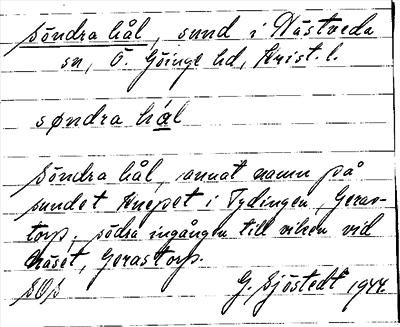 Söndra hål, sund i Västveda
sn, Ö. Göinge hd, Krist. l.
søndra hál
Söndra hål, annat namn på
sundet Knepet i Tydingen, Geras-
torp, södra ingången till viken vid
Näset, Gerastorp.
SOS
G. Sjöstedt 1944